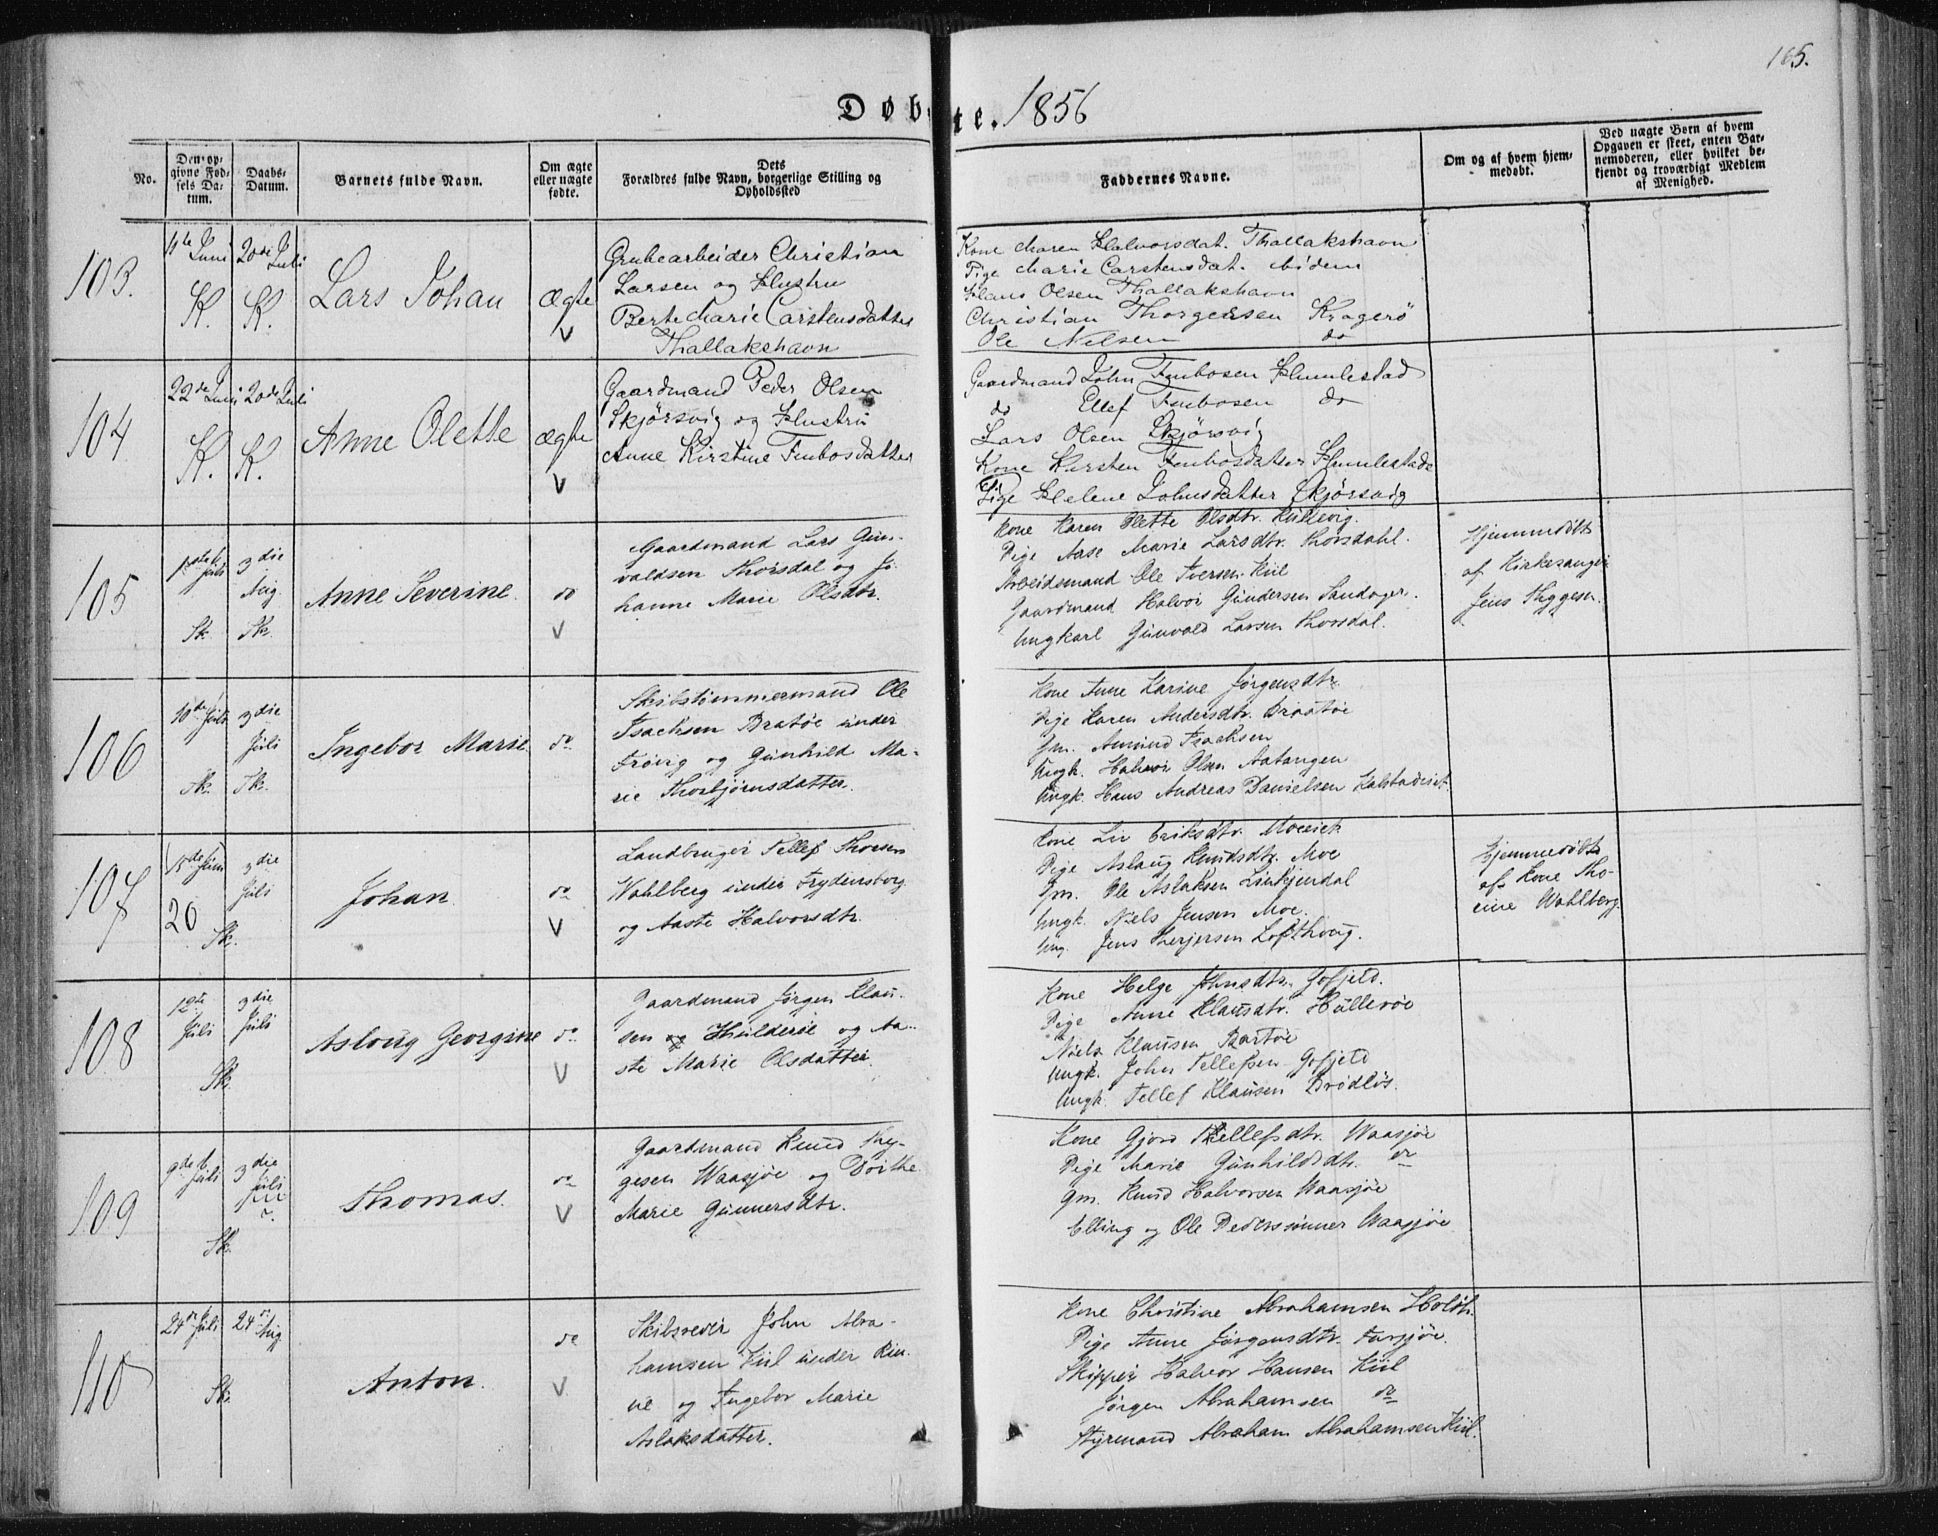 165.
Døbte. 1856
No.
Den opgivne Fødsels Datum.
Daabs-Datum.
Barnets fulde Navn.
Om ægte eller uægte fødte.
Dets Forældres fulde Navn, borgerlige Stilling og Opholdssted
Faddernes Navne.
Om og af hvem hjemmedøbt.
Ved uægte Børn af hvem Opgaven er skeet, enten Barnemoderen, eller hvilket bekjendt og troværdigt Medlem af Menighed.
103.
11te Juni
K.
20de Juli
K.
Lars Johan
Ægte
V
Grubearbeider Christian
Larsen og Hustru
Berte Marie Carstensdatter
Thallakshavn
Kone Maren Halvorsdat. Thallakshavn
Pige Marie Carstensdat. ibidem
Hans Olsen Thallakshavn
Christian Thorgersen Kragerö
Ole Nilsen do
104
22de Juni
K.
20de Juli
K.
Anne Olette
Ægte
V
Gaardmand Peder Olsen
Skjörsvig og Hustru
Anne Kirstine Finbosdatter
Gaardmand John Finbosen Humlestad
do Ellef Finbosen do
Lars Olsen Skjörsvig
Kone Kirsten Finbosdatter Humlestad
Pige Helene Johnsdatter Skjörsvig
105
Juli
Sk.
3die
Aug.
Sk.
Anne Severine.
do
V
Gaardmand Lars Gun-
valdsen Thorsdal og Jo-
hanne Marie Olsdtr.
Kone Karen Olette Olsdtr. Kullevig.
Pige Aase Marie Larsdtr. Thorsdahl.
Arbeidsmand Ole Iversen Kiil
Gaardmand Halvor Gundersen Sandager.
Ungkarl Gunvald Larsen Thorsdal.
Hjemmedöbt
af Kirkesanger
Jens Thygesen.
106
10de Juli
Sk.
3die
Juli
Sk.
Ingebor Marie
do
Skibstömmermand Ole
Isachsen Bratöe under
Frövig og Gunhild Ma-
rie Thorbjörnsdatter.
Kone Anne Karine Jörgensdtr.
Pige Karen Andersdtr. Braatöe
Gm. Amund Isachsen
Ungk. Halvor Olsen Aatangen
Ungk. Hans Andreas Danielsen Kalstadriet.
107
15de Juni
20
Sk.
3die
Juli
Johan
do
V
Landbruger Tellef Thorsen
Wahlberg under Frydensborg
og Aaste Halvorsdtr.
Kone Liv Eriksdtr. Moeeiet
Pige Aslaug Knudsdtr. Moe
Gm. Ole Aslaksen Linkjendal
Ungk. Niels Jensen Moe.
Ung. Jens Therjersen Lofthoug.
Hjemmedöbt
af Kone Tho-
rine Wahlberg.
108
12te
Juli
Sk.
3die
Juli
Asloug Georgine
do
V
Gaardmand Jörgen Klau-
sen Hulderöe og Aa-
ste Marie Olsdatter.
Kone Helge Johnsdtr. Gofjeld.
Pige Anne Klausdtr. Hulleröe
Niels Klausen Bartöe
Ungk. John Tellefsen Gofjeld
Ungk. Tellef Klausen Brödlös.
109
9de Juli
Sk.
3die
Juli
Thomas.
do
V
Gaardmand Knud Thy-
gesen Waasjöe og Dorthe
Marie Gunnersdtr.
Kone Gjord Kellefsdtr. Waasjöe
Pige Marie Gunhildsdtr. do
Gm. Knud Halvorsen Waasjöe
Elling og Ole Pederssönner Waasjöe
110
24de Juli
Sk.
24de
Aug
Anton.
do
V
Skibsreder John Abra-
hamsen Kiil under Rin-
ne og Ingebor Marie
Aslaksdatter.
Kone Christine Abrahamsen Holdt.
Pige Anne Jörgensdtr. Aasjöe.
Skipper Halvor Hansen Kiil
Jörgen Abrahamsen do
Styrmand Abraham Abrahamsen Kiil.